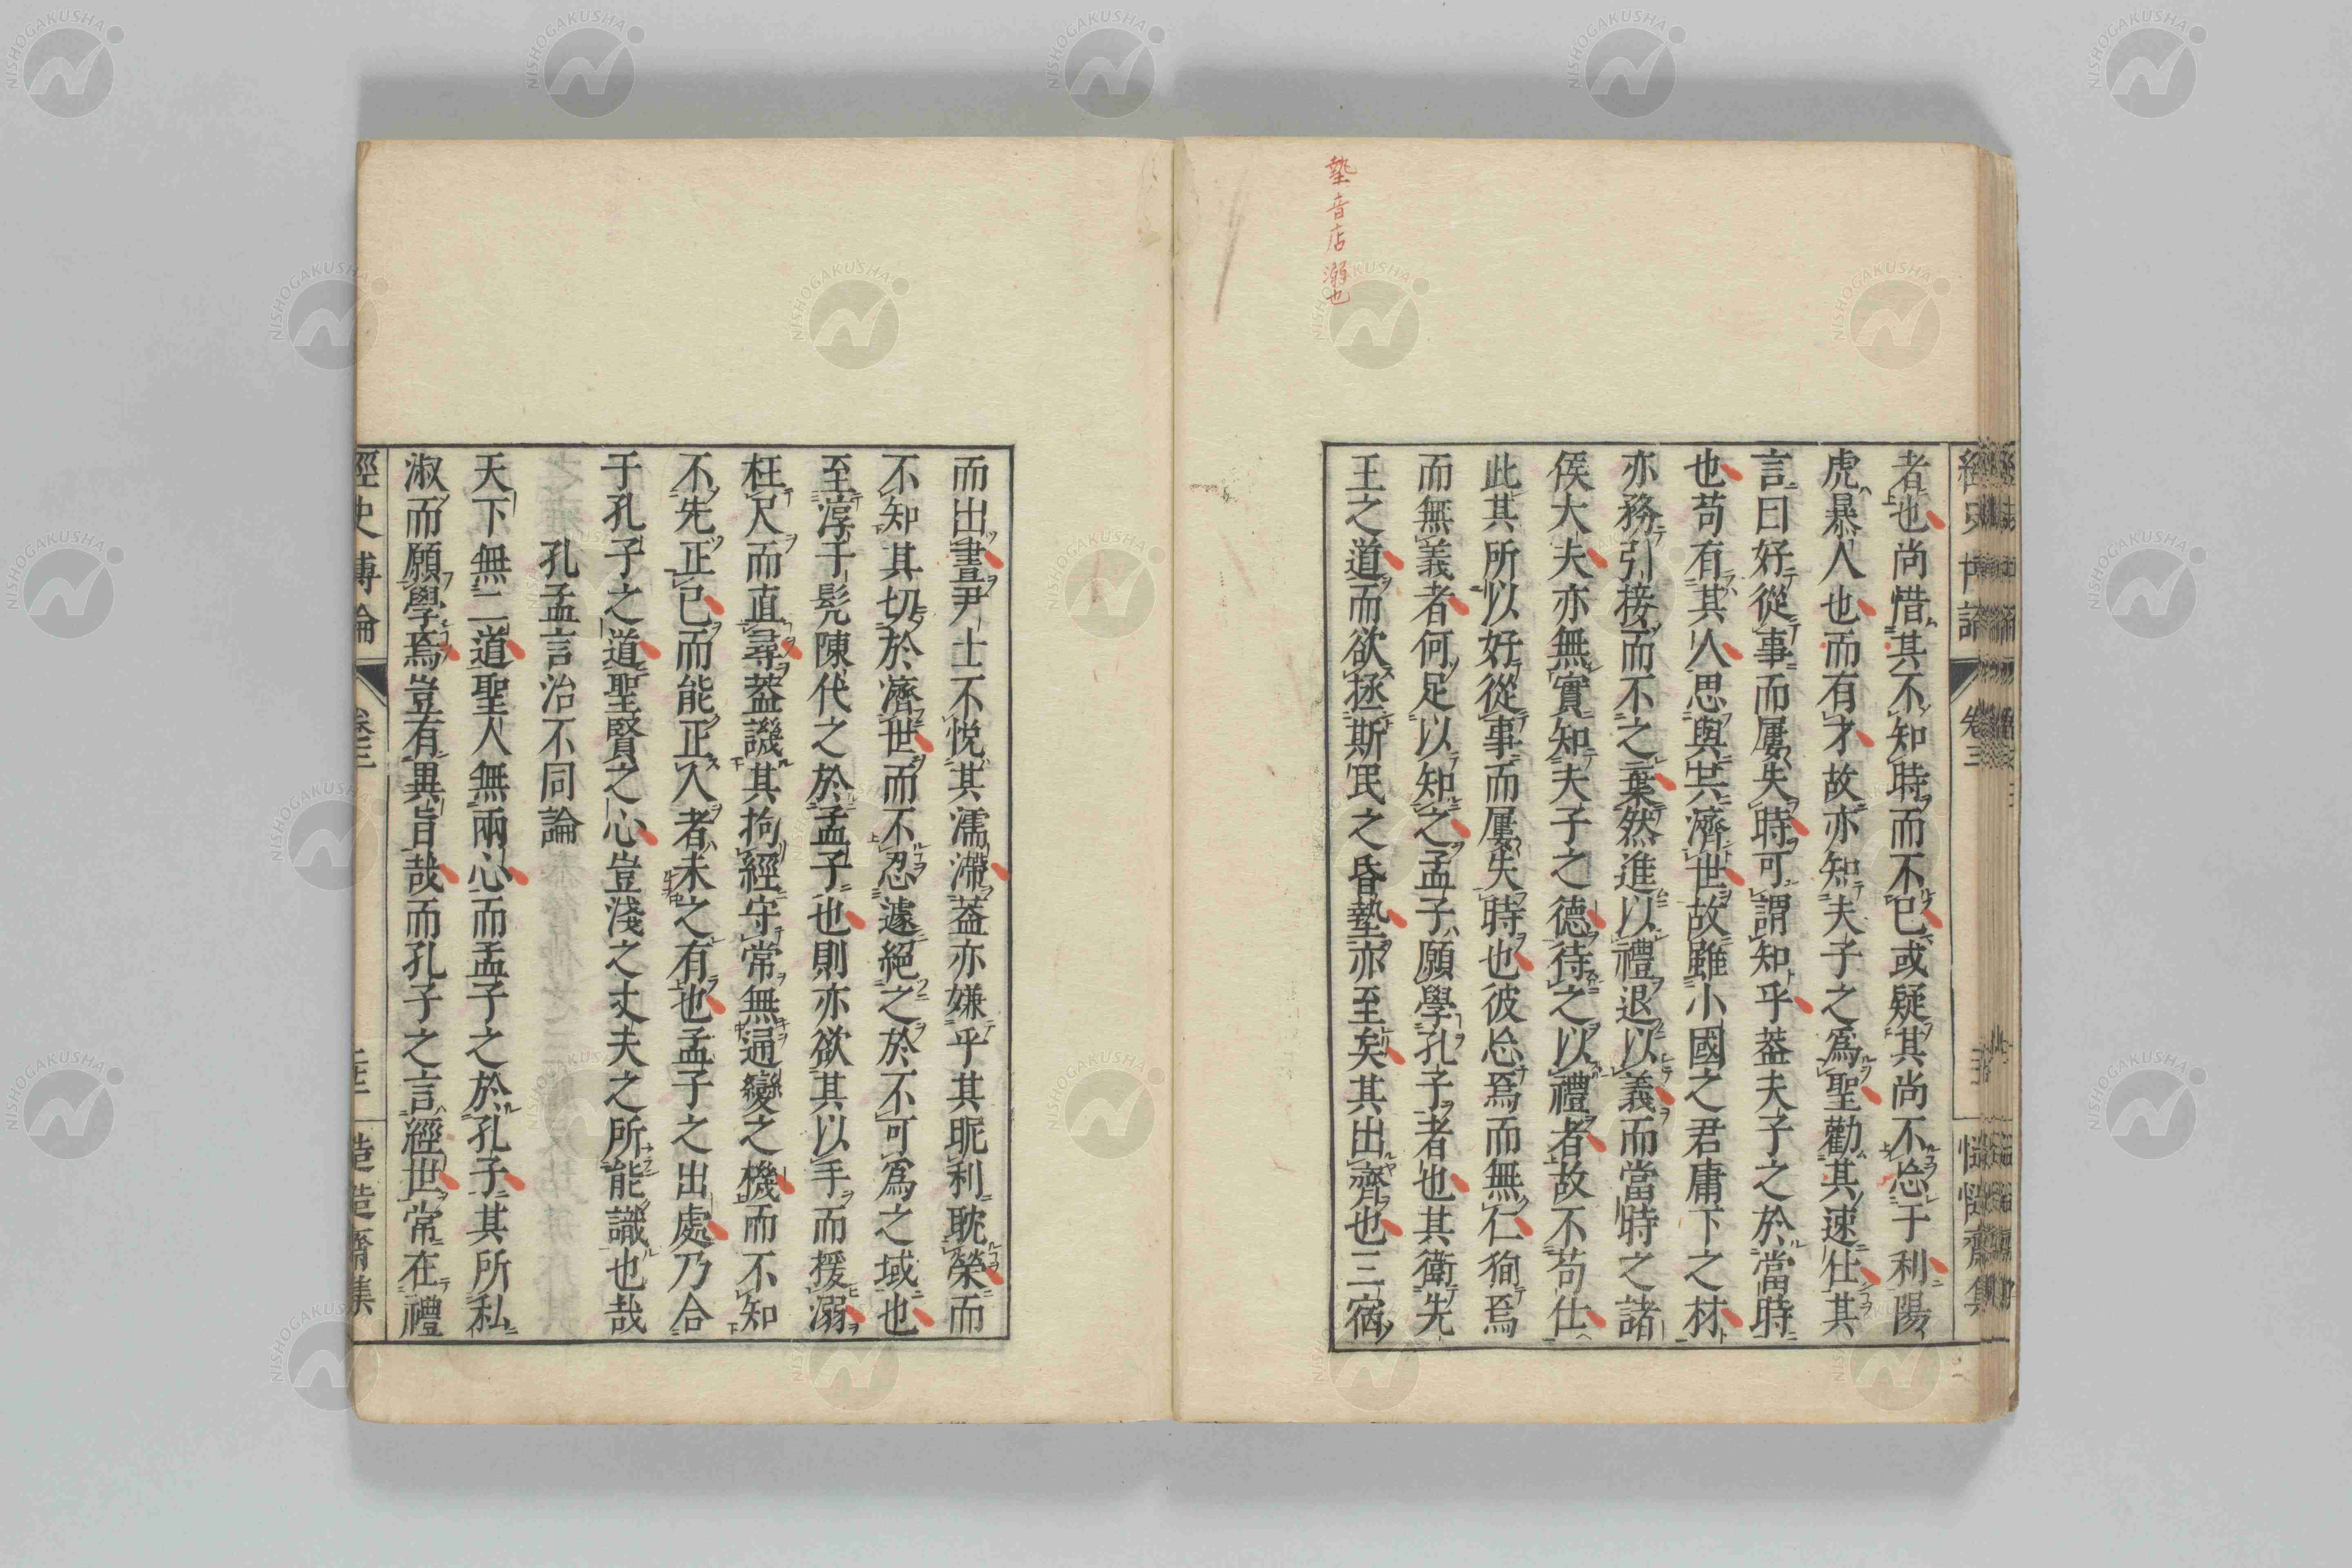 墊音店溺也
者也尚惜其不知時而不已或疑其尚不忘于利陽
虎暴人也而有才故亦知夫子之爲聖勸其速仕其
言曰好從事而屢失時可謂知乎葢夫子之於當時
也苟有其人思與共濟世故雖小國之君庸下之材
亦務引接而不之棄然進以禮退以義而當時之諸
侯大夫亦無實知夫子之德待之以禮者故不苟仕
此其所以好從事而屢失時也彼忩焉而無仁狥焉
而無義者何足以知之孟子願學孔子者也其衛先
王之道而欲拯斯民之昏墊亦至矣其出齊也三宿
而出晝尹士不悦其濡滯葢亦嫌乎其昵利耽榮而
不知其切於濟世而不忍遽絕之於不可爲之域也
至淳于髡陳代之於孟子也則亦欲其以手而援溺
枉尺而直尋葢譏其拘經守常無通變之機而不知
不先正己而能正人者未之有也孟子之出處乃合
于孔子之道聖賢之心豈淺之丈夫之所能識也哉
孔孟言治不同論
天下無二道聖人無兩心而孟子之於孔子其所私
淑而願學焉豈有異旨哉而孔子之言經世常在禮
經史博論
卷三
NISHOGAKUSHA